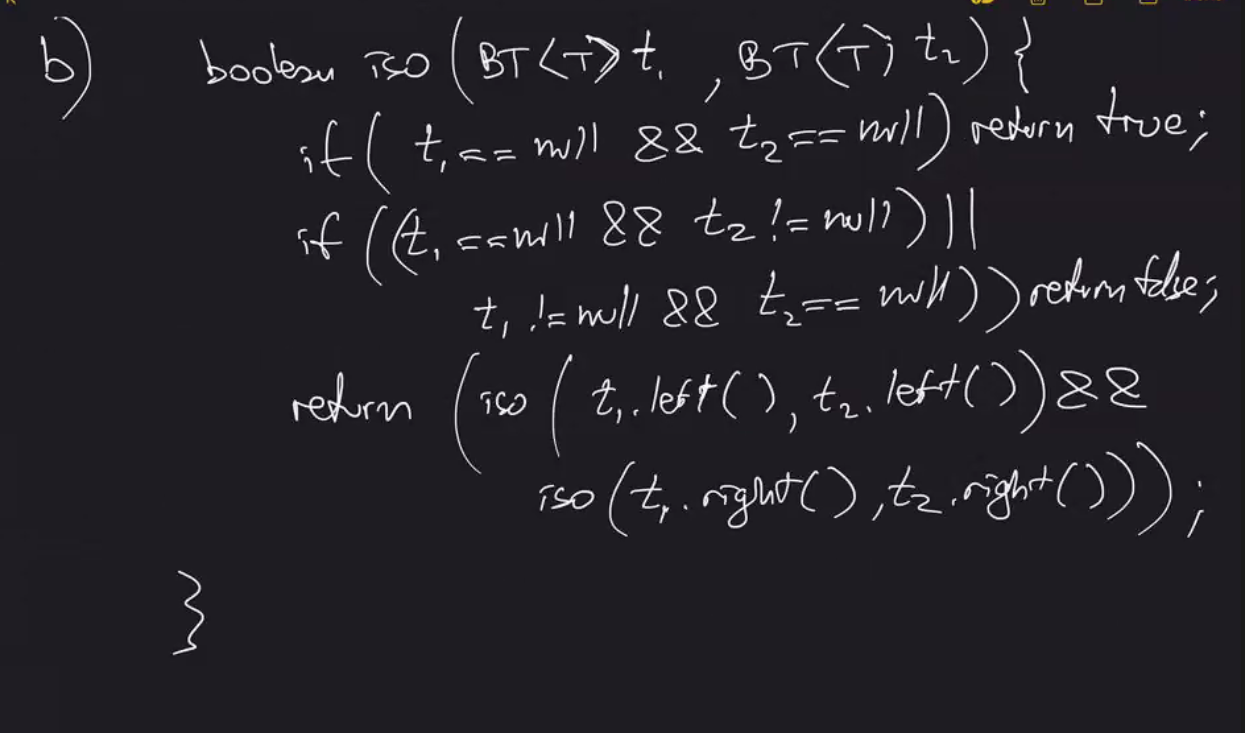 b) boolean iso(BT<T> t₁, BT<T> t₂) {
if( t₁ == null && t₂ == null) return true;
if ((t₁ == null && t₂ != null) ||
t₁ != null && t₂ == null)) return false;
return (iso( t₁.left(), t₂.left()) &&
iso(t₁.right(), t₂.right()));
}